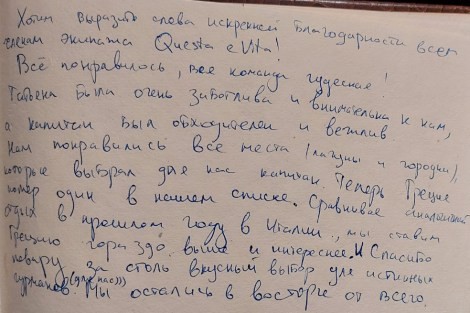 Хотим выразить слова искренней благодарности всем
членам экипажа Questa e Vita!
Всё понравилось, вся команда чудесная!
Татьяна была очень заботлива и внимательна к нам,
а капитан был обходителен и вежлив.
Нам понравились все места (лагуны и городки),
которые выбрал для нас капитан. Теперь Греция
номер один в нашем списке. Сравнивая аналогичный
отдых в прошлом году в Италии, мы ставим
Грецию гораздо выше и интереснее. И Спасибо
повару за столь вкусный выбор для истинных
гурманов (для нас))) Мы остались в восторге от всего.